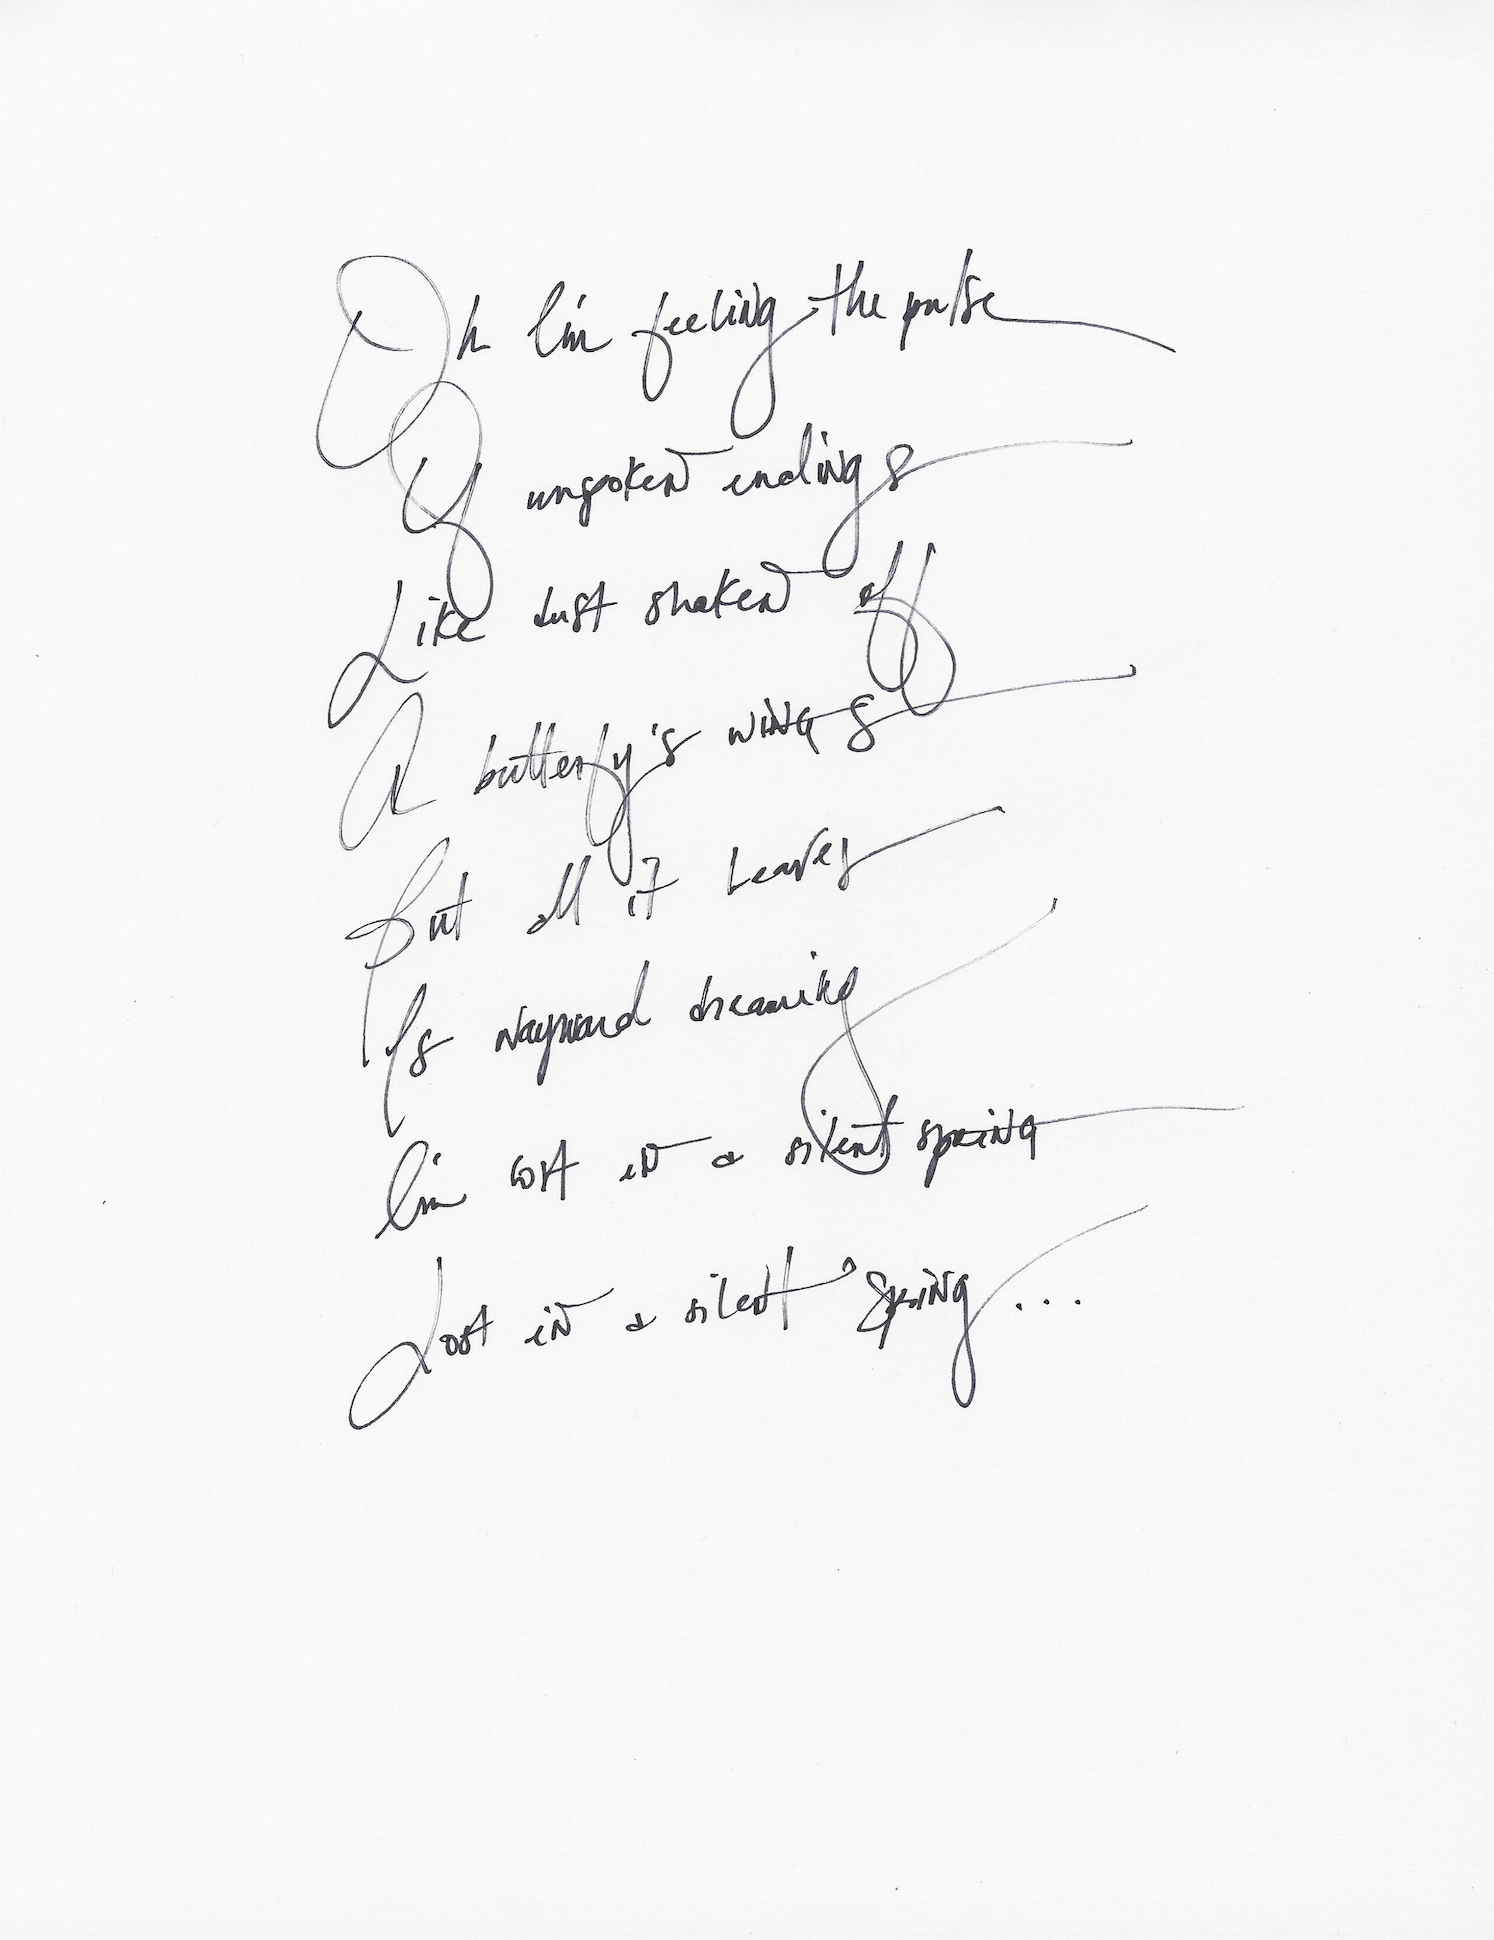 Oh I'm feeling the pulse
Of unspoken endings
Like dust shaken off
A butterfly's wings
But all it leaves
Is wayward dreaming
I'm lost in a silent spring
Lost in a silent spring...